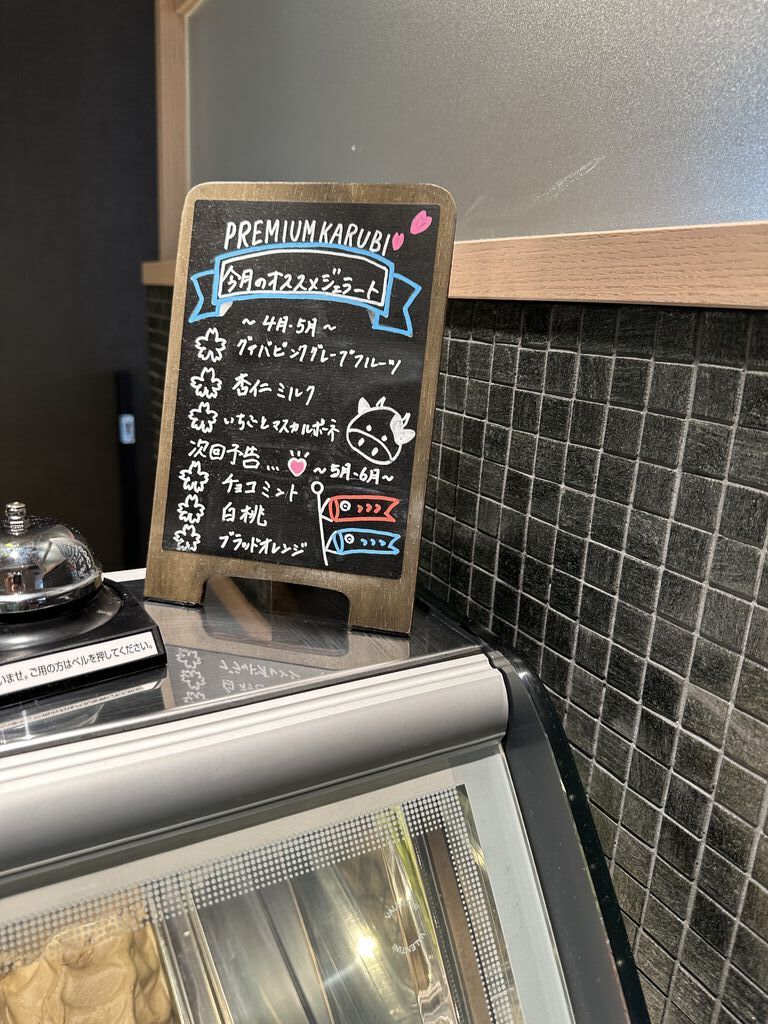 PREMIUM KARUBI
今月のオススメジェラート
～4月・5月～
グァバピンクグレープフルーツ
杏仁ミルク
いちごとマスカルポーネ
次回予告…
～5月-6月～
チョコミント
白桃
ブラッドオレンジ
いませ。ご用の方はベルを押してください。
VALENTINI